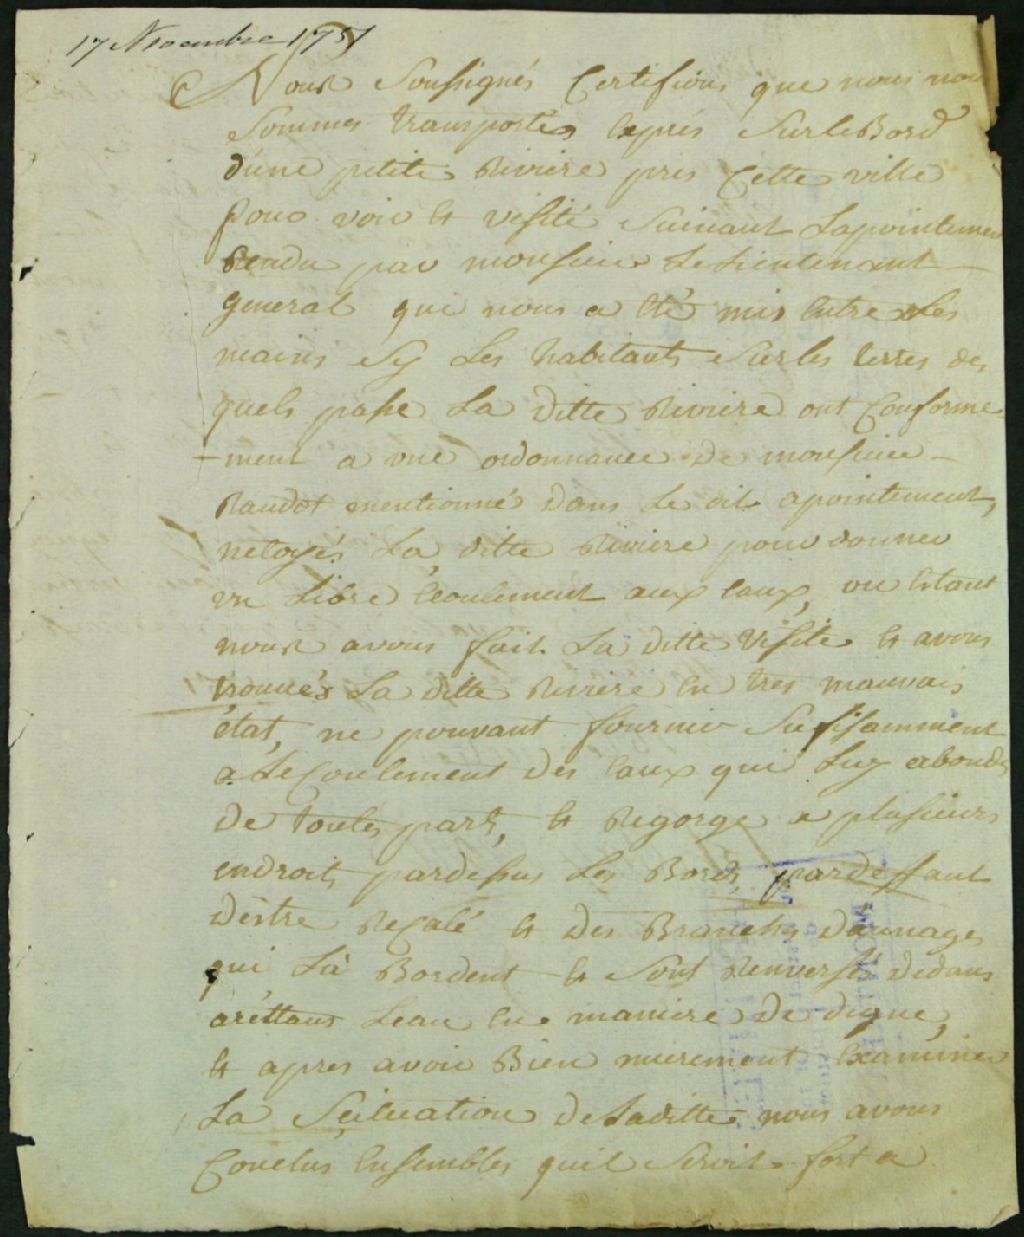 17 Novembre 1751
Nous Soussignés Certifions que nous nous
Sommes transportés Exprés Sur le Bord
d'une petite Riviere pres Cette ville
pour voir et visité Suivant Lapointement
Rendu par monsieur Le Lieutenant
general qui nous a Eté mis Entre Les
mains Sy Les habitants Sur les terres des
quels passe La ditte Riviere ont Conforme
ment a une ordonnance de monsieur
Raudot mentionné dans Le dit apointement,
netoyés La ditte Riviere pour donner
un Libre Ecoulement aux Eaux, ou Estant
nous avons fait La ditte Visite et avons
trouvés La ditte Riviere En tres mauvais
état, ne pouvant fournir Suffisamment
a LeCoulement des Eaux qui Luy abonde
de toutes parts, et Regorge a plusieurs
endroits pardessus Les Bords, par deffaut
d'être ReCalé et des Branches daunages
qui La Bordent et Sont Renversés dedans
aréttans Leau En maniere de digue,
et apres avoir Bien meurement Examinée
La Scituation de Laditte nous avons
Conclus Ensembles quil Seroit fort a